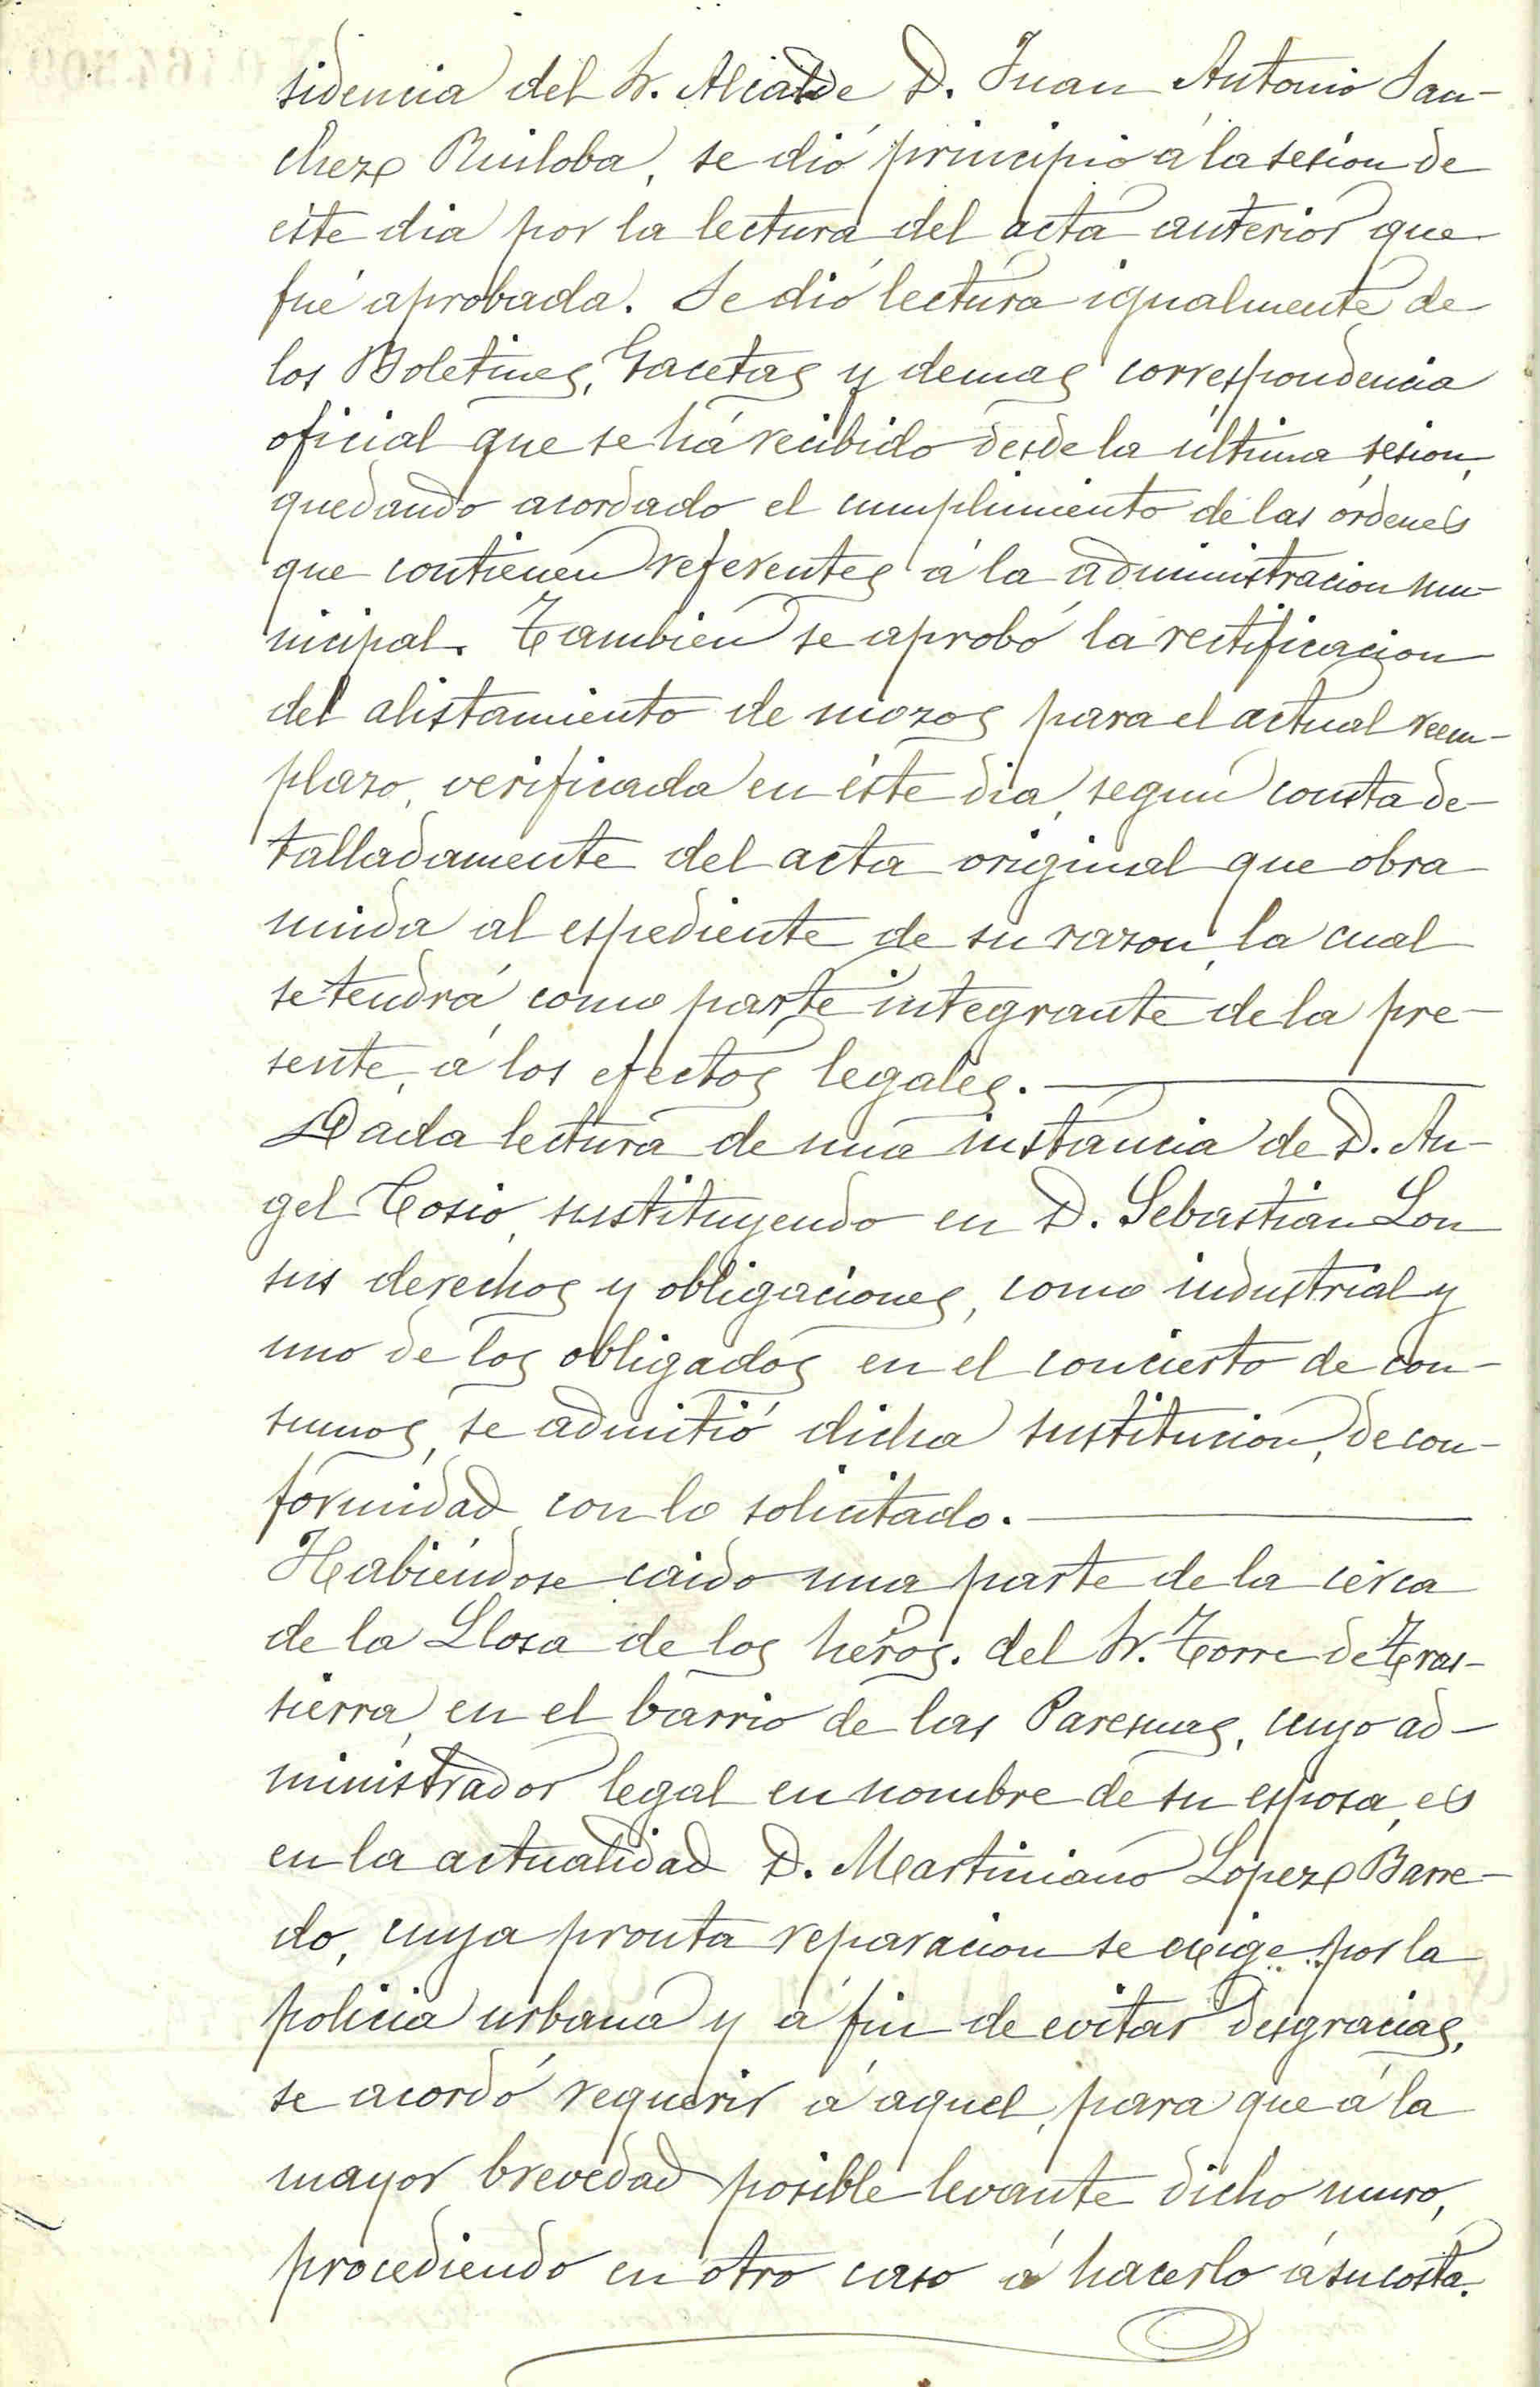 sidencia del Sr. Alcalde D. Juan Antonio San-
chez Ruiloba, se dió principio á la sesion de
este dia por la lectura del acta anterior que
fué aprobada. Se dió lectura igualmente de
los Boletines, Gacetas y demas correspondencia
oficial que se há recibido desde la última sesion,
quedando acordado el cumplimiento de las órdenes
que contienen referentes á la administracion mu-
nicipal. Tambien se aprobó la rectificacion
del alistamiento de mozos para el actual reem-
plazo, verificada en éste dia, segun consta de-
talladamente del acta original que obra
unida al espediente de su razon, la cual
se tendrá como parte integrante de la pre-
sente, á los efectos legales.
Dada lectura de una instancia de D. An-
gel Cosio, sustituyendo en D. Sebastian Lon
sus derechos y obligaciones, como industrial y
uno de los obligados en el concierto de con-
sumos, se admitió dicha sustitucion, de con-
formidad con lo solicitado.
Habiéndose caido una parte de la cerca
de la Llosa de los heros. del Sr. Torre de Tras-
sierra, en el barrio de las Paresuas, cuyo ad-
ministrador legal en nombre de su esposa, es
en la actualidad D. Martiniano Lopez Barre-
do, cuya pronta reparacion se exige por la
policia urbana y á fin de evitar desgracias,
se acordó requerir á aquel, para que á la
mayor brevedad posible levante dicho muro,
procediendo en otro caso á hacerlo á su costa.